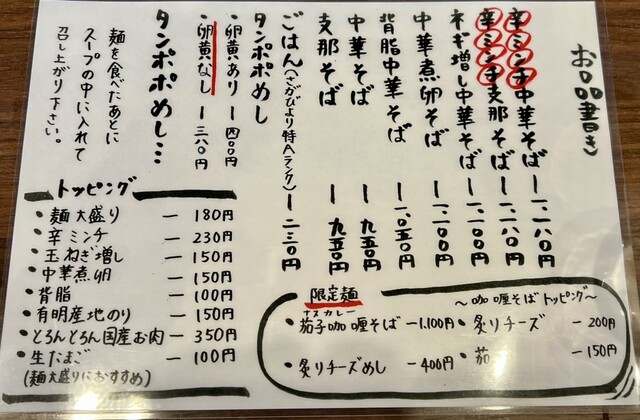 お品書き
辛ミンチ中華そば ー 一、一八〇円
辛ミンチ支那そば ー 一、一八〇円
ネギ増し中華そば ー 一、一〇〇円
中華煮卵そば ー 一、一〇〇円
背脂中華そば ー 一、〇五〇円
中華そば ー 九五〇円
支那そば ー 九五〇円
ごはん(さがびより特Aランク) ー 二三〇円
タンポポめし
・卵黄あり ー 四〇〇円
・卵黄なし ー 三八〇円
タンポポめし…
麺を食べたあとに
スープの中に入れて
召し上がり下さい。
トッピング
・麺大盛り ー 180円
・辛ミンチ ー 230円
・玉ねぎ増し ー 150円
・中華煮卵 ー 150円
・背脂 ー 100円
・有明産地のり ー 150円
・とろんとろん国産お肉 ー 350円
・生たまご ー 100円
(麺大盛りにおすすめ)
限定麺
ナスカレー
・茄子咖喱そば ー 1.100円
・炙りチーズめし ー 400円
〜咖喱そばトッピング〜
・炙りチーズ ー 200円
・茄 ー 150円